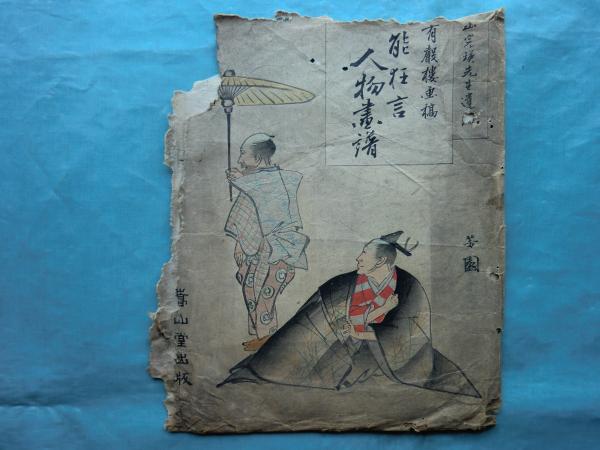 山完瑛先生遺
有嚴樓画稿
能狂言
人物畫譜
芳園
嵩山堂出版